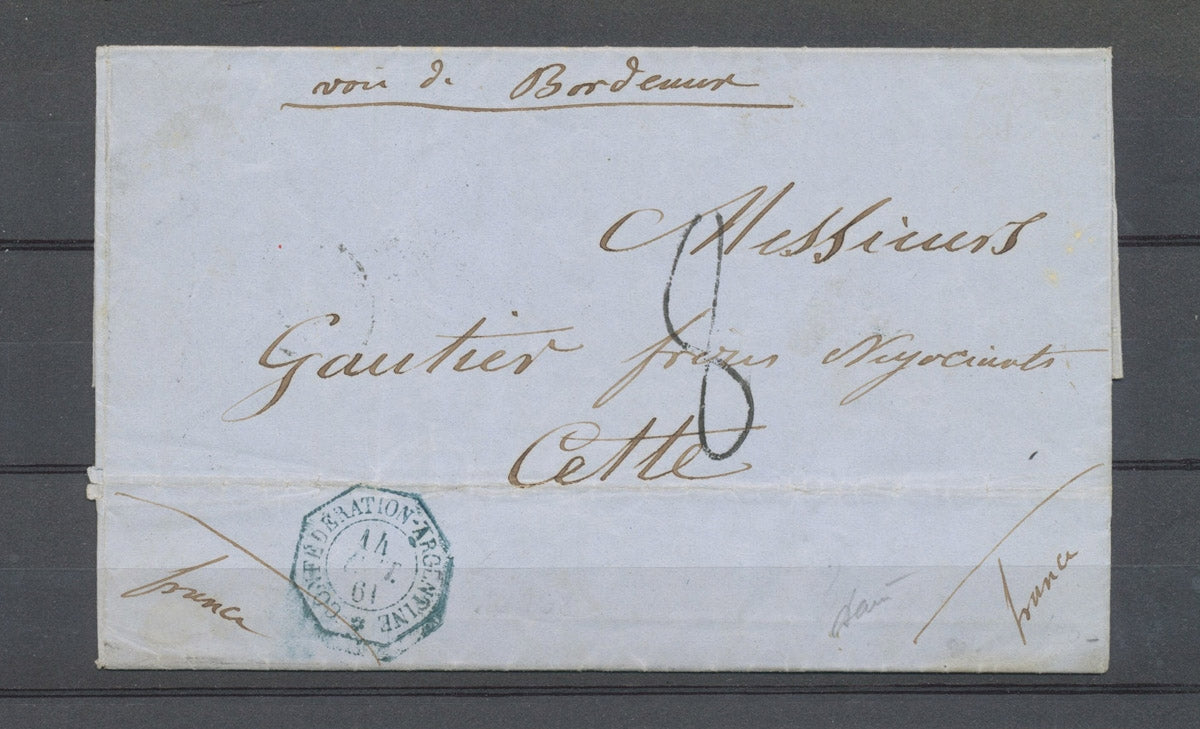 voie de Bordeaux
Messieurs
8
Gautier frères Negociants
Cette
CONFÉDÉRATION-ARGENTINE
14
61
france
france